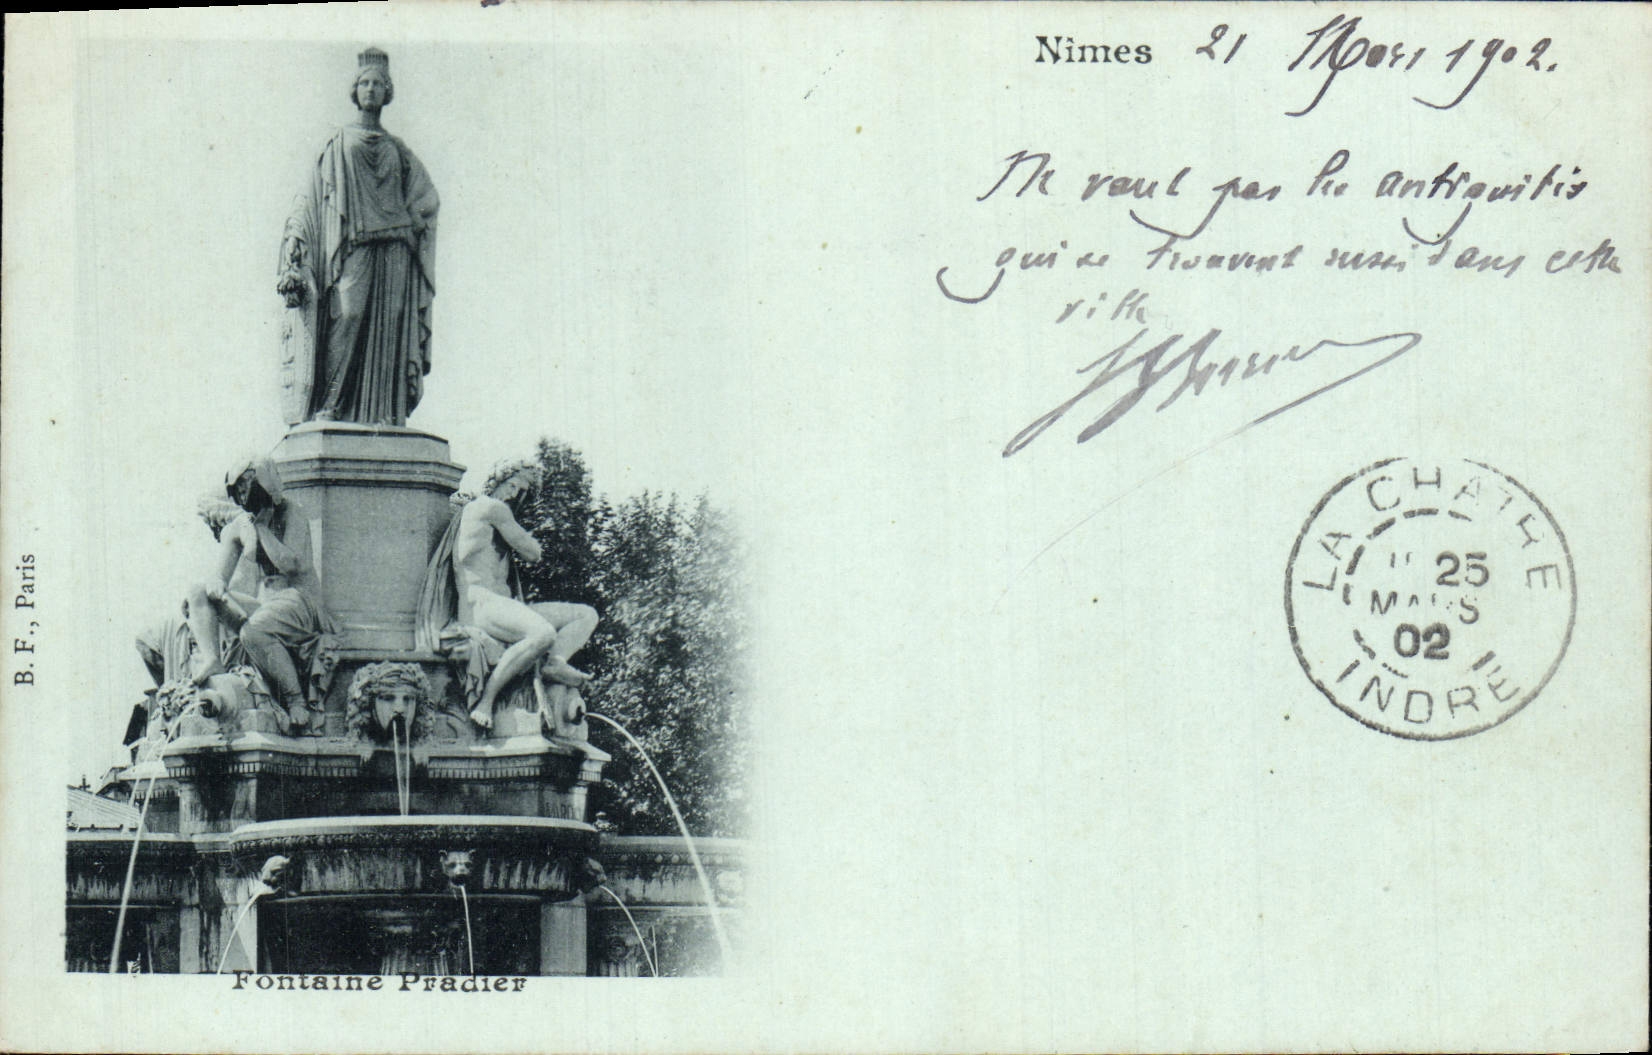 Nîmes 21 Mars 1902.
Ne vaut pas les antiquités
qui se trouvent aussi dans cette
ville
LA CHATRE
25
MARS
02
INDRE
B. F., Paris
Fontaine Pradier